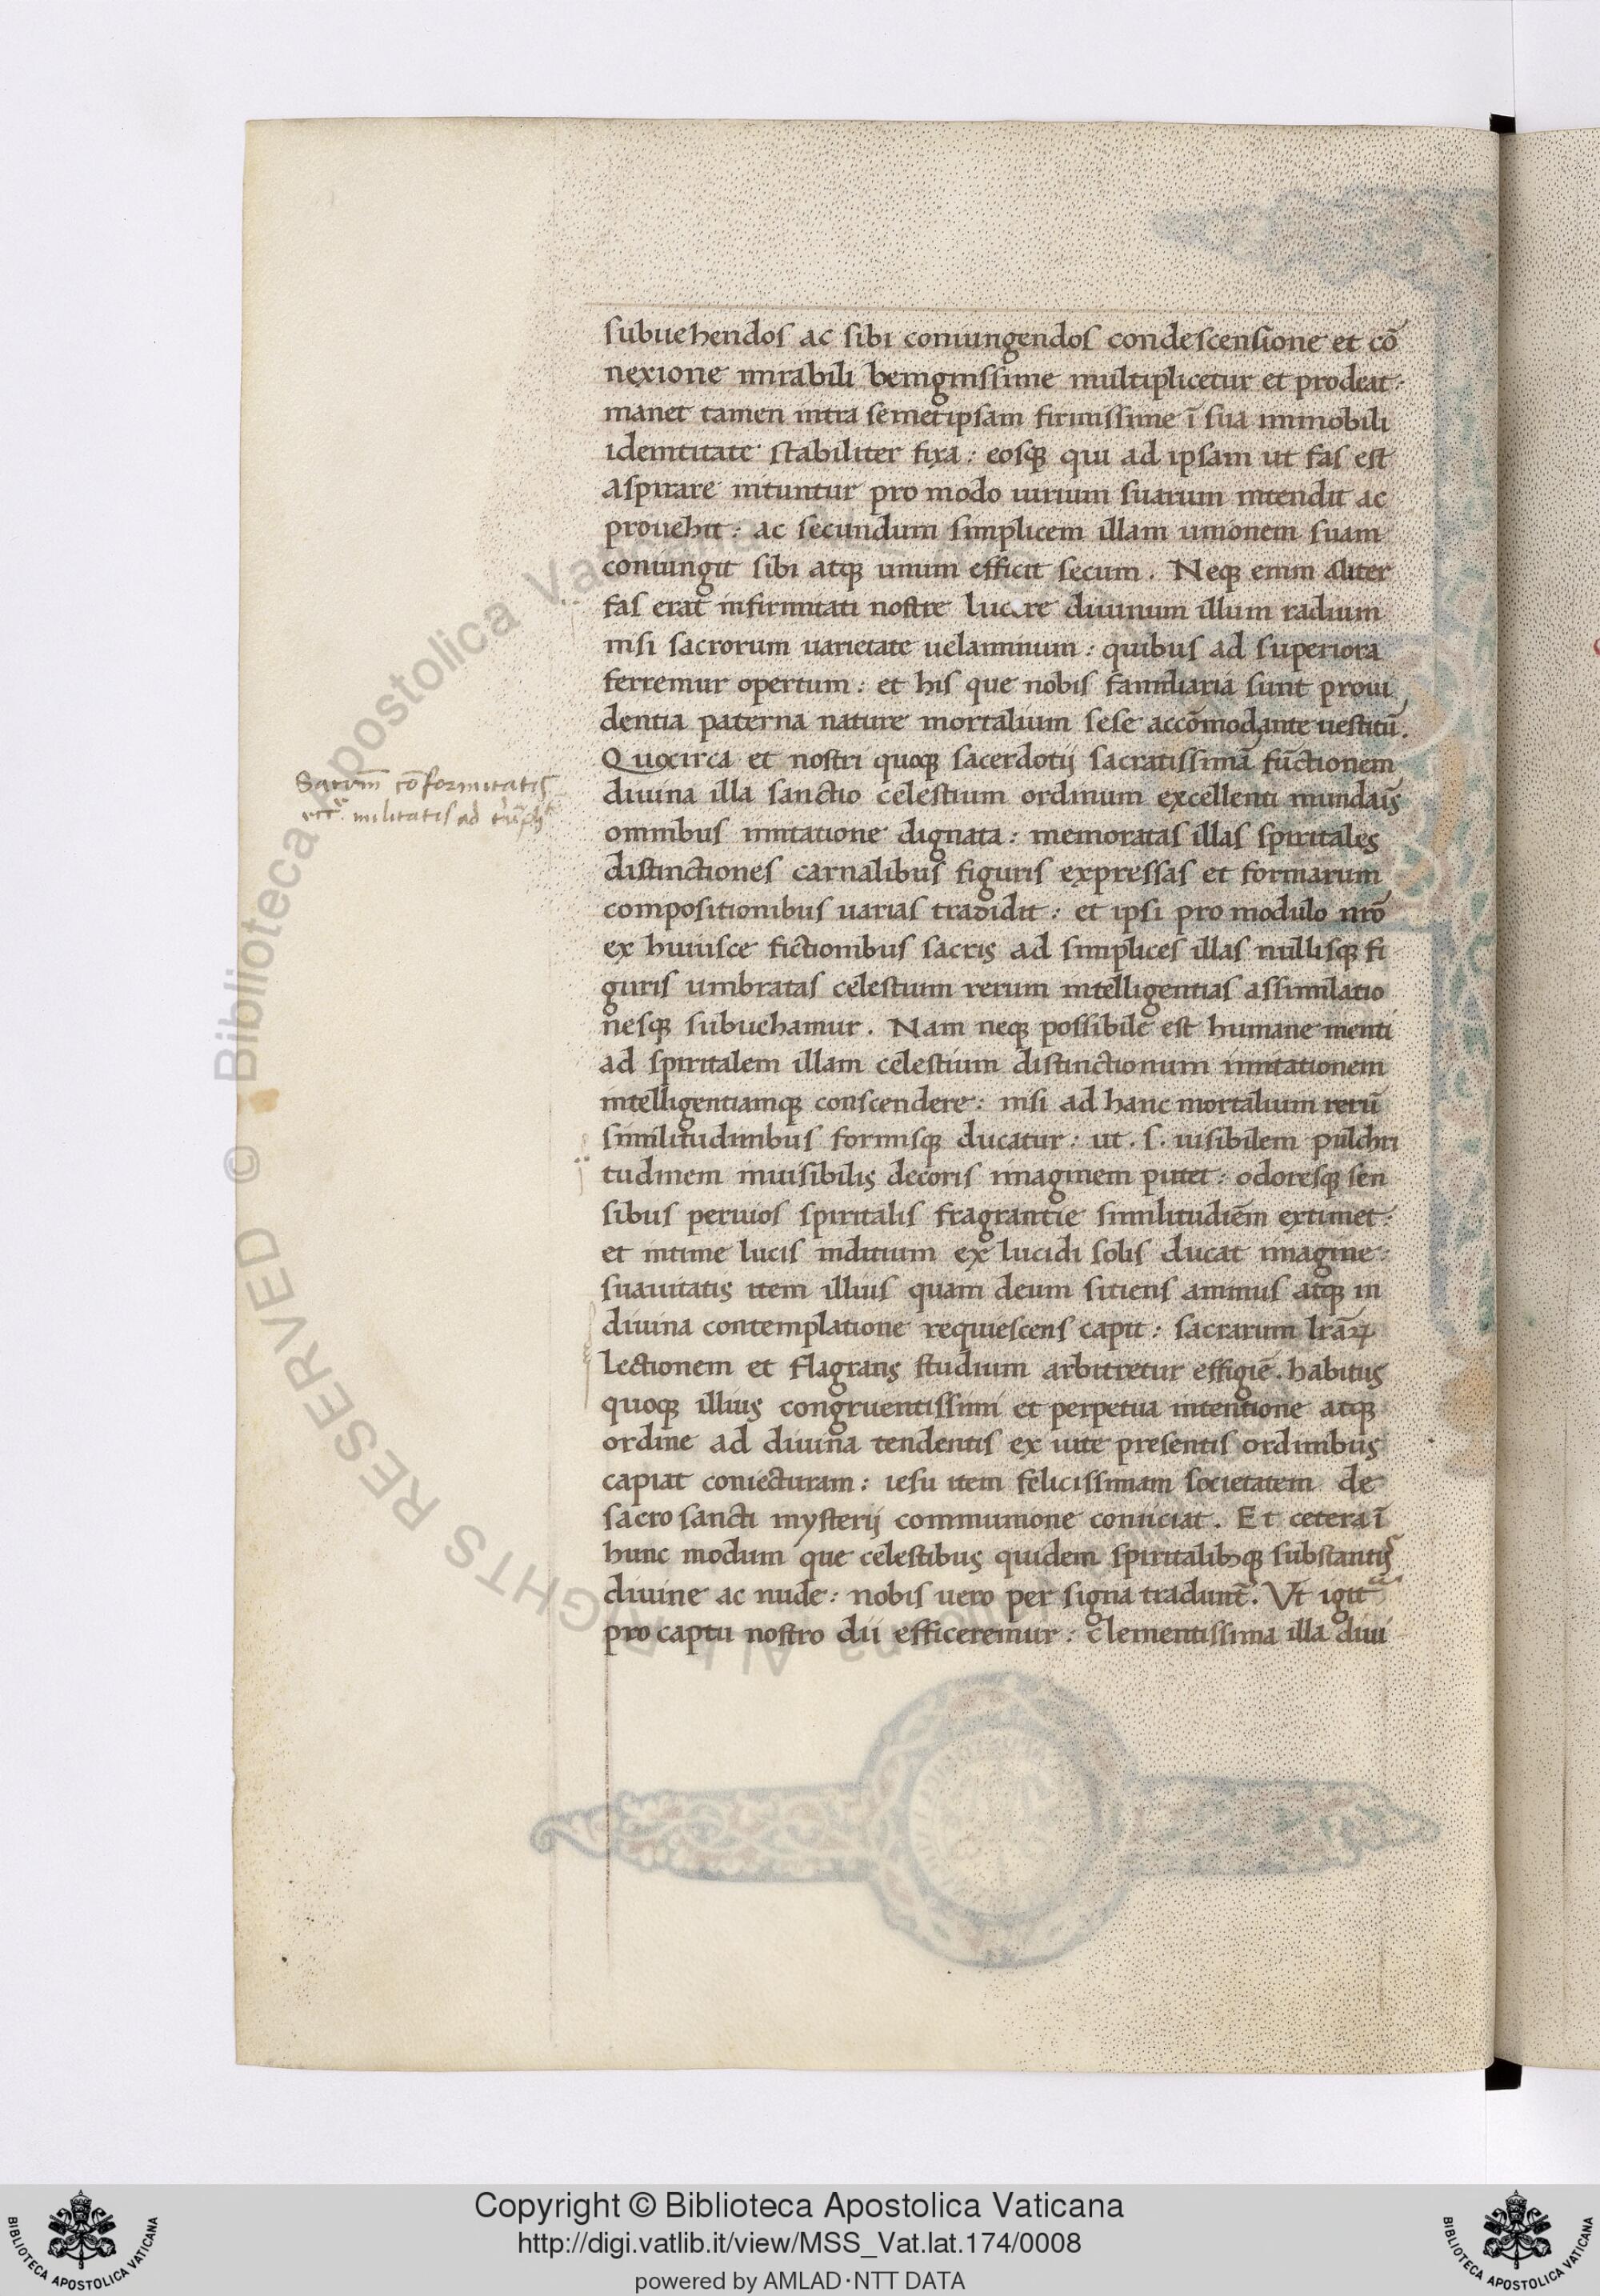 subuehendos ac sibi coniungendos condescensione et cō
nexione mirabili benignissime multiplicetur et prodeat:
manet tamen intra semetipsam firmissime ī sua immobili
idemtitate stabiliter fixa: eosqꝫ qui ad ipsam ut fas est
aspirare nituntur pro modo uirium suarum intendit ac
prouehit: ac secundum simplicem illam unionem suam
coniungit sibi atqꝫ unum efficit secum. Neqꝫ enim aliter
fas erat infirmitati nostre lucere diuinum illum radium
nisi sacrorum uarietate uelaminum: quibus ad superiora
ferremur opertum: et his que nobis familiaria sunt proui
dentia paterna nature mortalium sese accōmodante uestitū.
Quocirca et nostri quoqꝫ sacerdotij sacratissimā fūctionem
diuina illa sanctio celestium ordinum excellenti mundais
omnibus imitatione dignata: memoratas illas spiritales
distinctiones carnalibus figuris expressas et formarum
compositionibus uarias tradidit: et ipsi pro modulo nrō
ex huiusce fictionibus sacris ad simplices illas nullisqꝫ fi
guris umbratas celestium rerum intelligentias assimilatio
nesqꝫ subuehamur. Nam neqꝫ possibile est humane menti
ad spiritalem illam celestium distinctionum imitationem
intelligentiamqꝫ conscendere: nisi ad hanc mortalium rerū
similitudinibus formisqꝫ ducatur: ut .s. uisibilem pulchri
tudinem inuisibilis decoris imaginem putet: odoresqꝫ sen
sibus peruios spiritalis fragrantie similitudiēm extimet:
et intime lucis inditium ex lucidi solis ducat imagine:
suauitatis item illius quam deum sitiens animus atqꝫ in
diuina contemplatione requiescens capit: sacrarum lrāꝝ
lectionem et flagrans studium arbitretur effigiē. habitus
quoqꝫ illius congruentissimi et perpetua intentione atqꝫ
ordine ad diuina tendentis ex uite presentis ordinibus
capiat coniecturam: iesu item felicissimam societatem de
sacro sancti mysterij communione coniiciat. Et cetera ī
hunc modum que celestibus quidem spiritalibꝫqꝫ substantijs
diuine ac nude: nobis uero per signa tradunt̄. Vt igit̄
pro captu nostro dii efficeremur: clementissima illa diui
cōformitatis
militatis ad
Copyright © Biblioteca Apostolica Vaticana
http://digi.vatlib.it/view/MSS_Vat.lat.174/0008
powered by AMLAD·NTT DATA
© Biblioteca Apostolica Vaticana
ALL RIGHTS RESERVED
BIBLIOTECA APOSTOLICA VATICANA
BIBLIOTECA APOSTOLICA VATICANA